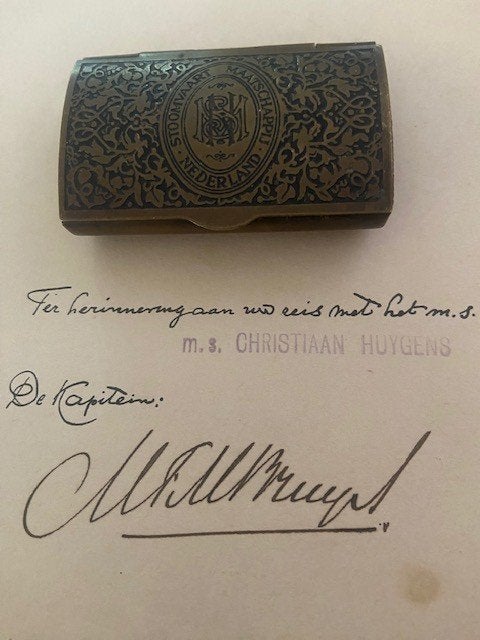 STOOMVAART MAATSCHAPPIJ
NEDERLAND
Ter herinnering aan uw reis met het m.s.
m.s. CHRISTIAAN HUYGENS
De Kapitein: